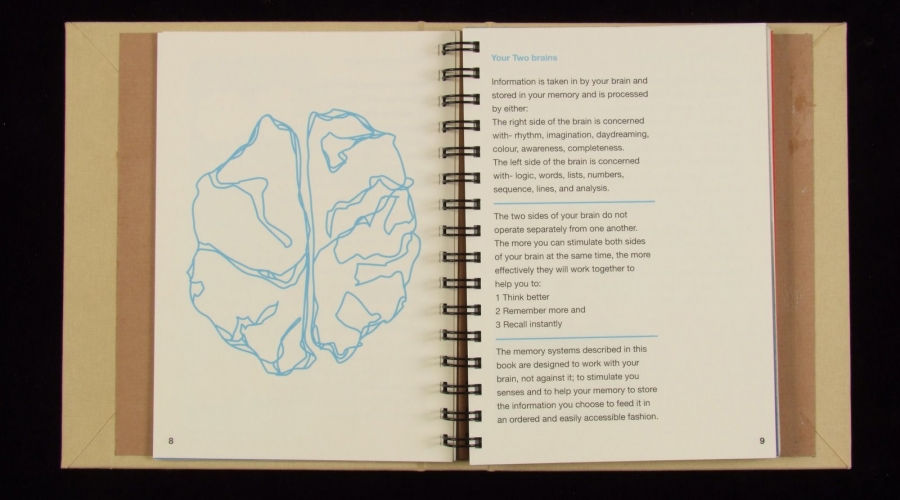 8
Your Two brains
Information is taken in by your brain and
stored in your memory and is processed
by either:
The right side of the brain is concerned
with- rhythm, imagination, daydreaming,
colour, awareness, completeness.
The left side of the brain is concerned
with- logic, words, lists, numbers,
sequence, lines, and analysis.
The two sides of your brain do not
operate separately from one another.
The more you can stimulate both sides
of your brain at the same time, the more
effectively they will work together to
help you to:
1 Think better
2 Remember more and
3 Recall instantly
The memory systems described in this
book are designed to work with your
brain, not against it; to stimulate you
senses and to help your memory to store
the information you choose to feed it in
an ordered and easily accessible fashion.
9